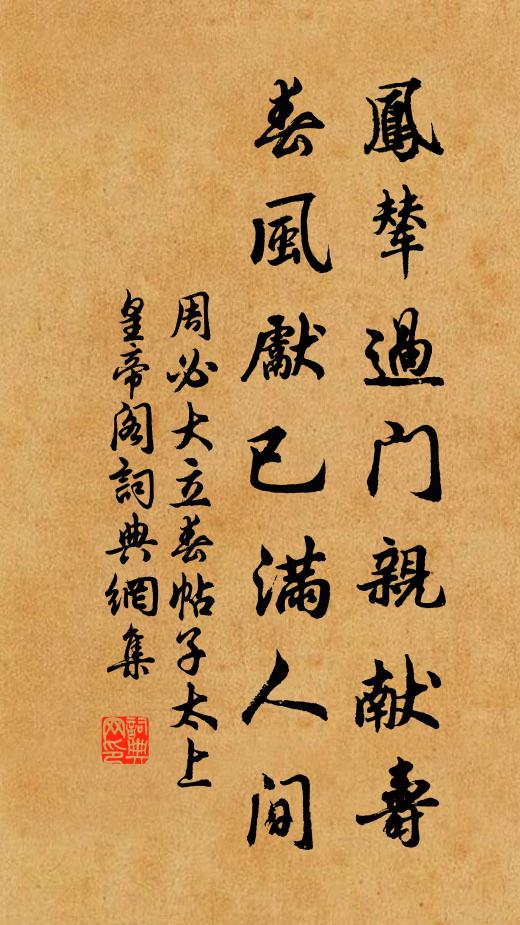 鳳輦過门親献壽
春風獻已滿人间
周必大立春帖子太上
皇帝阁詞典網集
詞典网印